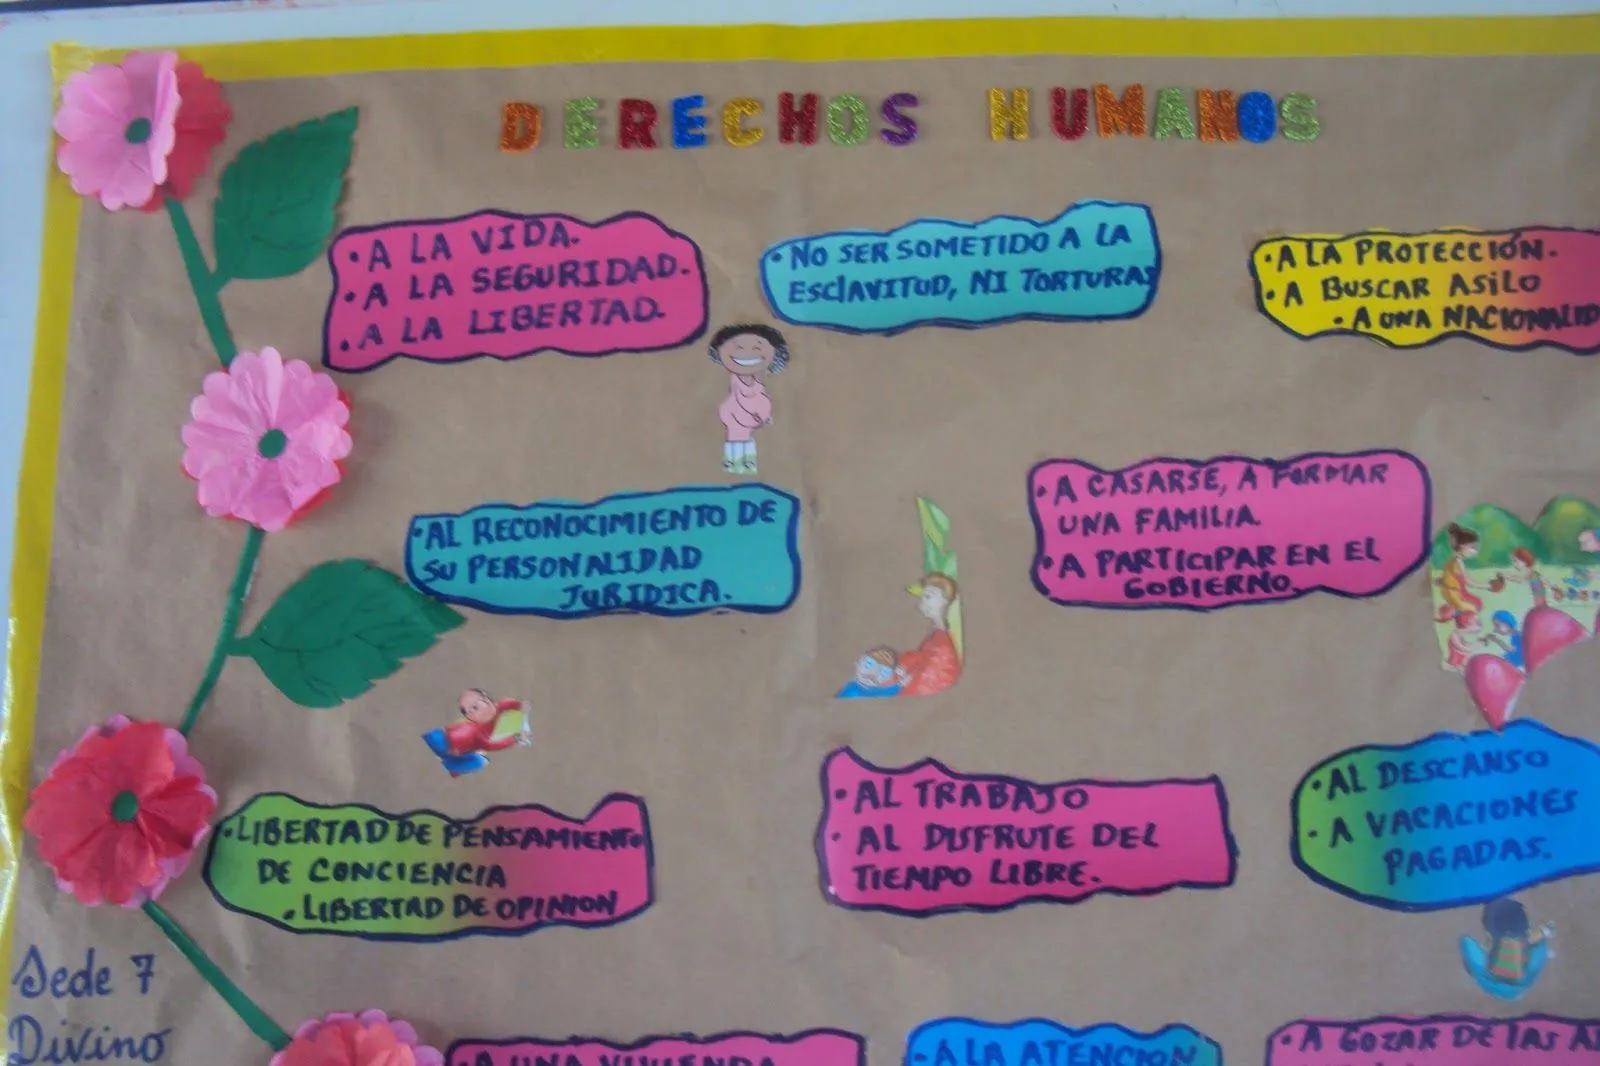 DERECHOS HUMANOS
• A LA VIDA.
• A LA SEGURIDAD.
• A LA LIBERTAD.
• NO SER SOMETIDO A LA
ESCLAVITUD, NI TORTURAS
• A LA PROTECCIÓN.
• A BUSCAR ASILO
• A UNA NACIONALID
• AL RECONOCIMIENTO DE
SU PERSONALIDAD
JURIDICA.
• A CASARSE, A FORMAR
UNA FAMILIA.
• A PARTICIPAR EN EL
GOBIERNO.
• LIBERTAD DE PENSAMIENTO
DE CONCIENCIA
• LIBERTAD DE OPINION
• AL TRABAJO
• AL DISFRUTE DEL
TIEMPO LIBRE.
• AL DESCANSO
• A VACACIONES
PAGADAS.
Sede 7
Divino
• A UNA VIVIENDA
- A LA ATENCION
• A GOZAR DE LAS